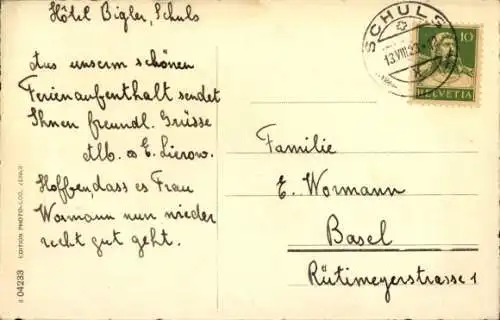 Hôtel Bigler, Schuls
Aus unserm schönen
Ferienaufenthalt sendet
Ihnen freundl. Grüsse
Alb. & E. Lierow.
Hoffen, dass es Frau
Wormann nun wieder
recht gut geht.
Familie
E. Wormann
Basel
Rütimeyerstrasse 1
SCHULS
13 VIII 23
10
HELVETIA
EDITION PHOTO-LOG.
04233